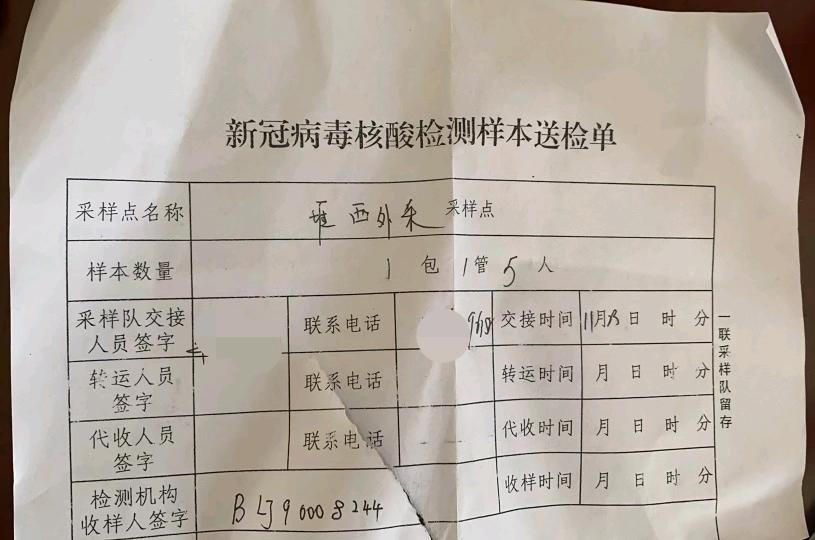 新冠病毒核酸检测样本送检单
采样点名称 堆西外采 采样点
样本数量 1 包 1 管 5 人
采样队交接人员签字 联系电话 968 交接时间 11月 日 时 分
转运人员签字 联系电话 转运时间 月 日 时 分
代收人员签字 联系电话 代收时间 月 日 时 分
检测机构收样人签字 BLJ90008244 收样时间 月 日 时 分
一联采样队留存